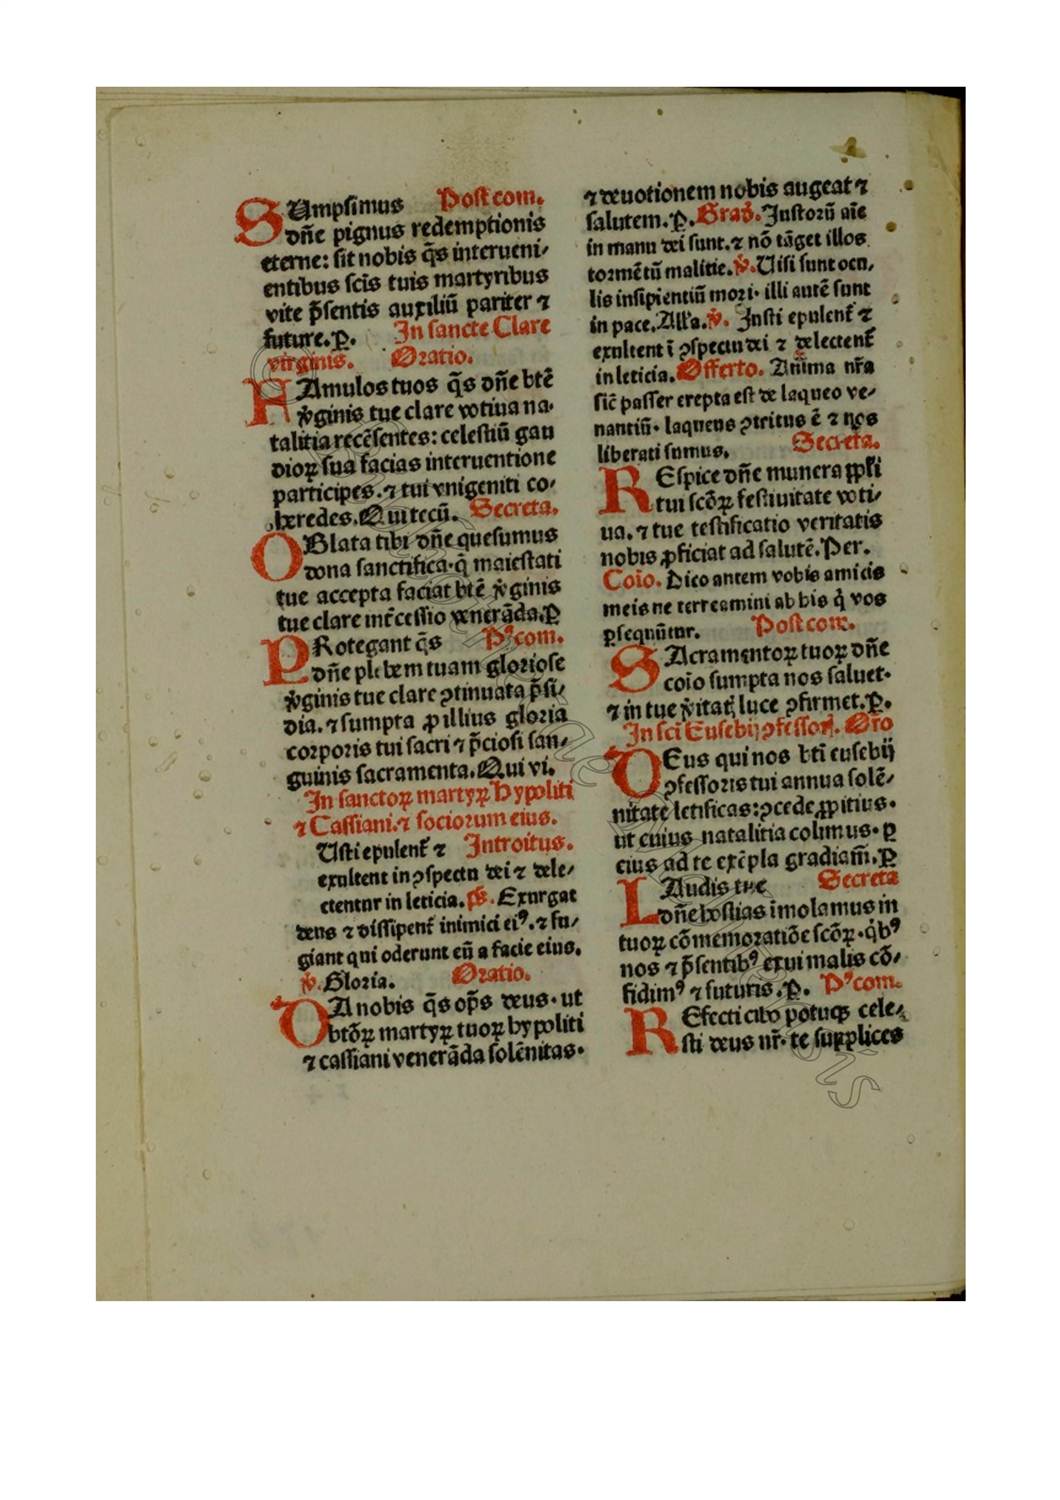 SUmpsimus Post com.
dñe pignus redemptionis
eterne: sit nobis q̃s interueni⸗
entibus scĩs tuis martyribus
vite p̃sentis auxiliũ pariter ⁊
future.ꝑ. In sancte Clare
virginis. Oratio.
FAmulos tuos q̃s dñe btẽ
v̓ginis tue clare votiua na⸗
talitia recẽsentes: celestiũ gau
dioꝝ sua facias interuentione
participes.⁊ tui vnigeniti co⸗
heredes.Qui tecũ. Secreta.
OBlata tibi dñe quesumus
dona sanctifica.q̃ maiestati
tue accepta faciat btẽ v̓ginis
tue clare int̃cessio venerãda.ꝑ
PRotegant q̃s Pꝰcom.
dñe plebem tuam gloriose
v̓ginis tue clare ꝯtinuata p̃si⸗
dia.⁊ sumpta ꝓ illius gloria
corporis tui sacri ⁊ p̃ciosi san⸗
guinis sacramenta.Qui vi.
In sanctoꝝ martyꝝ Hypoliti
⁊ Cassiani.⁊ sociorum eius.
Usti epulent̃ ⁊ Introitus.
exultent in ꝯspectu dei ⁊ dele⸗
ctentur in leticia.ps̃. Exurgat
deus ⁊ dissipent̃ inimici eiꝰ.⁊ fu⸗
giant qui oderunt eũ a facie eius.
v̓. Gloria. Oratio.
DA nobis q̃s op̃s deus. ut
btõꝝ martyꝝ tuoꝝ hypoliti
⁊ cassiani venerãda solẽnitas.
⁊ deuotionem nobis augeat ⁊
salutem.ꝑ. Grad̃. Justorũ aĩe
in manu dei sunt.⁊ nõ tãget illos
tormẽtũ malitie.v̓. Uisi sunt ocu⸗
lis insipientiũ mori. illi autẽ sunt
in pace.Alla.v̓. Justi epulent̃ ⁊
exultent ĩ ꝯspectu dei ⁊ delectent̃
in leticia.Offerto. Anima nr̃a
sic̃ passer erepta est de laqueo ve⸗
nantiũ. laqueus ꝯtritus ẽ ⁊ nos
liberati sumus. Secreta.
REspice dñe munera ꝓpl̃i
tui scõꝝ festiuitate voti⸗
ua.⁊ tue testificatio veritatis
nobis ꝓficiat ad salutẽ.Per.
Coĩo. Dico autem vobis amicis
meis ne terreamini ab his q̓ vos
ꝑsequũtur. Post com.
SAcramentoꝝ tuoꝝ dñe
coĩo sumpta nos saluet.
⁊ in tue v̓itatꝭ luce ꝯfirmet.ꝑ.
In scĩ Eusebij ꝯfessoꝝ. Oro
DEus qui nos bt̃i eusebij
ꝯfessoris tui annua solẽ⸗
nitate letificas:ꝯcede ꝓpitius.
ut cuius natalitia colimus. ꝑ
eius ad te exẽpla gradiam̃.ꝑ
LAudis tue Secreta
dñe hostias ĩmolamus in
tuoꝝ cõmemoratiõe scõꝝ.q̓bꝰ
nos ⁊ p̃sentibꝰ exui malis cõ⸗
fidimꝰ ⁊ futuris.ꝑ. Pꝰcom.
REfecti cibo potuqꝫ cele⸗
sti deus nr̃. te supplices